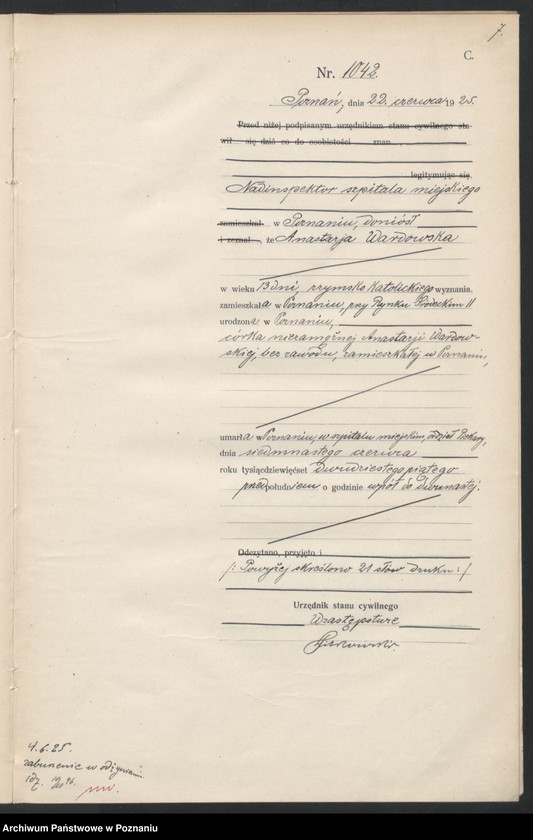 7.
C.
Nr. 1042.
Poznań, dnia 22. czerwca 1925.
Przed niżej podpisanym urzędnikiem stanu cywilnego sta-
wił się dziś co do osobistości znan
legitymując się
Nadinspektor szpitala miejskiego
zamieszkał w Poznaniu, doniósł
i zeznał, że Anastazja Wardowska
w wieku 13 dni, rzymsko katolickiego wyznania,
zamieszkała w Poznaniu, przy Rynku Śródeckim 11
urodzona w Poznaniu,
córka niezamężnej Anastazji Wardow-
skiej, bez zawodu, zamieszkałej w Poznaniu,
umarła w Poznaniu, w szpitalu miejskim, oddział
dnia siedmnastego czerwca
roku tysiącdziewięćset dwudziestego piątego
przedpołudniem o godzinie wpół do dwunastej.
Odczytano, przyjęto i
/: Powyżej skreślono 21 słów druku :/
Urzędnik stanu cywilnego
W zastępstwie
4.6.25.
Archiwum Państwowe w Poznaniu